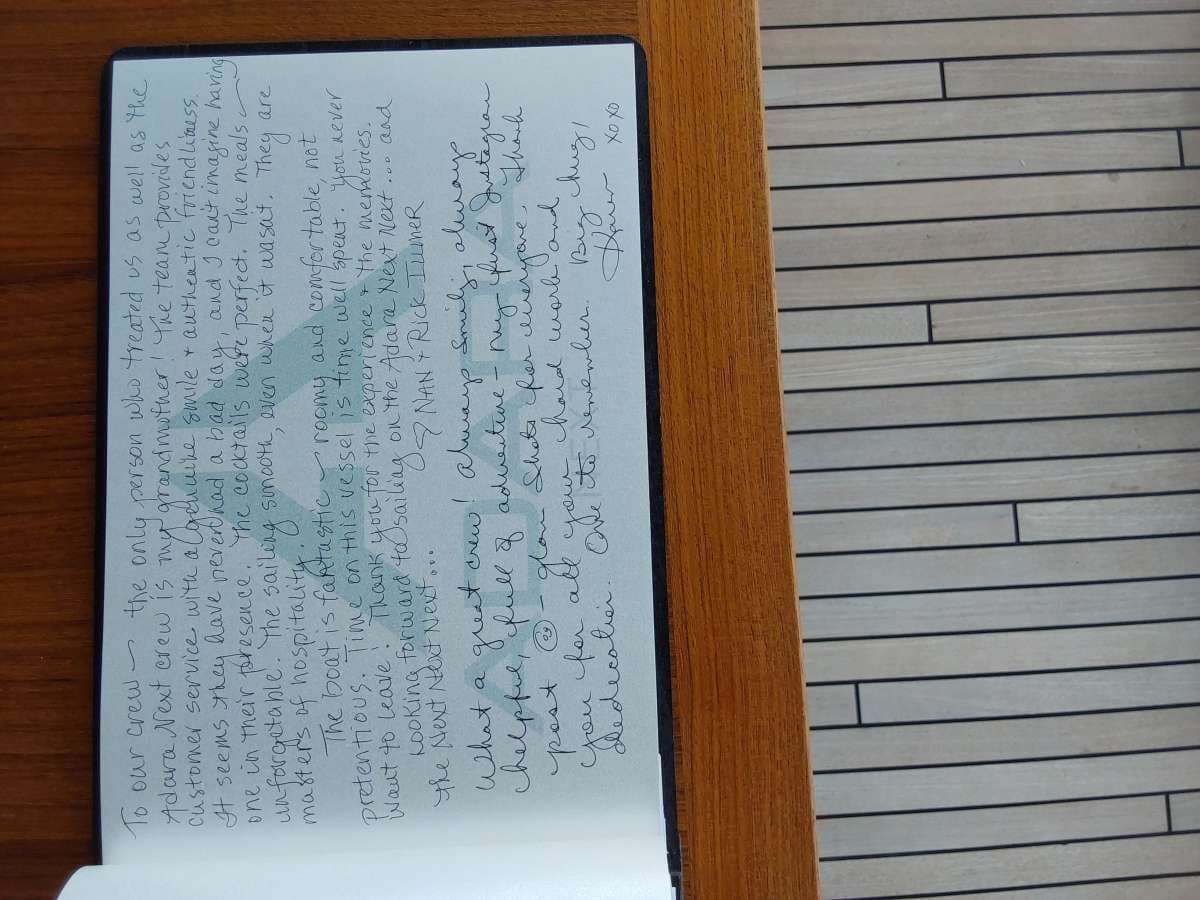 To our crew — the only person who treated us as well as the
Adara Next crew is my grandmother! The team provides
customer service with a genuine smile + authentic friendliness.
It seems they have never had a bad day, and I can't imagine having
one in their presence. The cocktails were perfect. The meals —
unforgetable. The sailing smooth, even when it wasn't. They are
masters of hospitality.
The boat is fantastic — roomy and comfortable, not
pretentious. Time on this vessel is time well spent. You never
want to leave! Thank you for the experience + the memories.
Looking forward to sailing on the Adara Next Next... and
the Next Next Next...
NAN + RICK
What a great crew! Always smily, always
helpful, full of adventure - my first Instagram
post - glam shots for everyone. Thank
you for all your hard work and
dedication. One to remember. Big hug,
Karen xoxo
ADARA